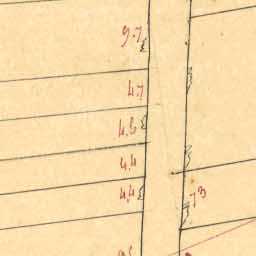 9.7
4.7
4.6
4.4
4.4
73